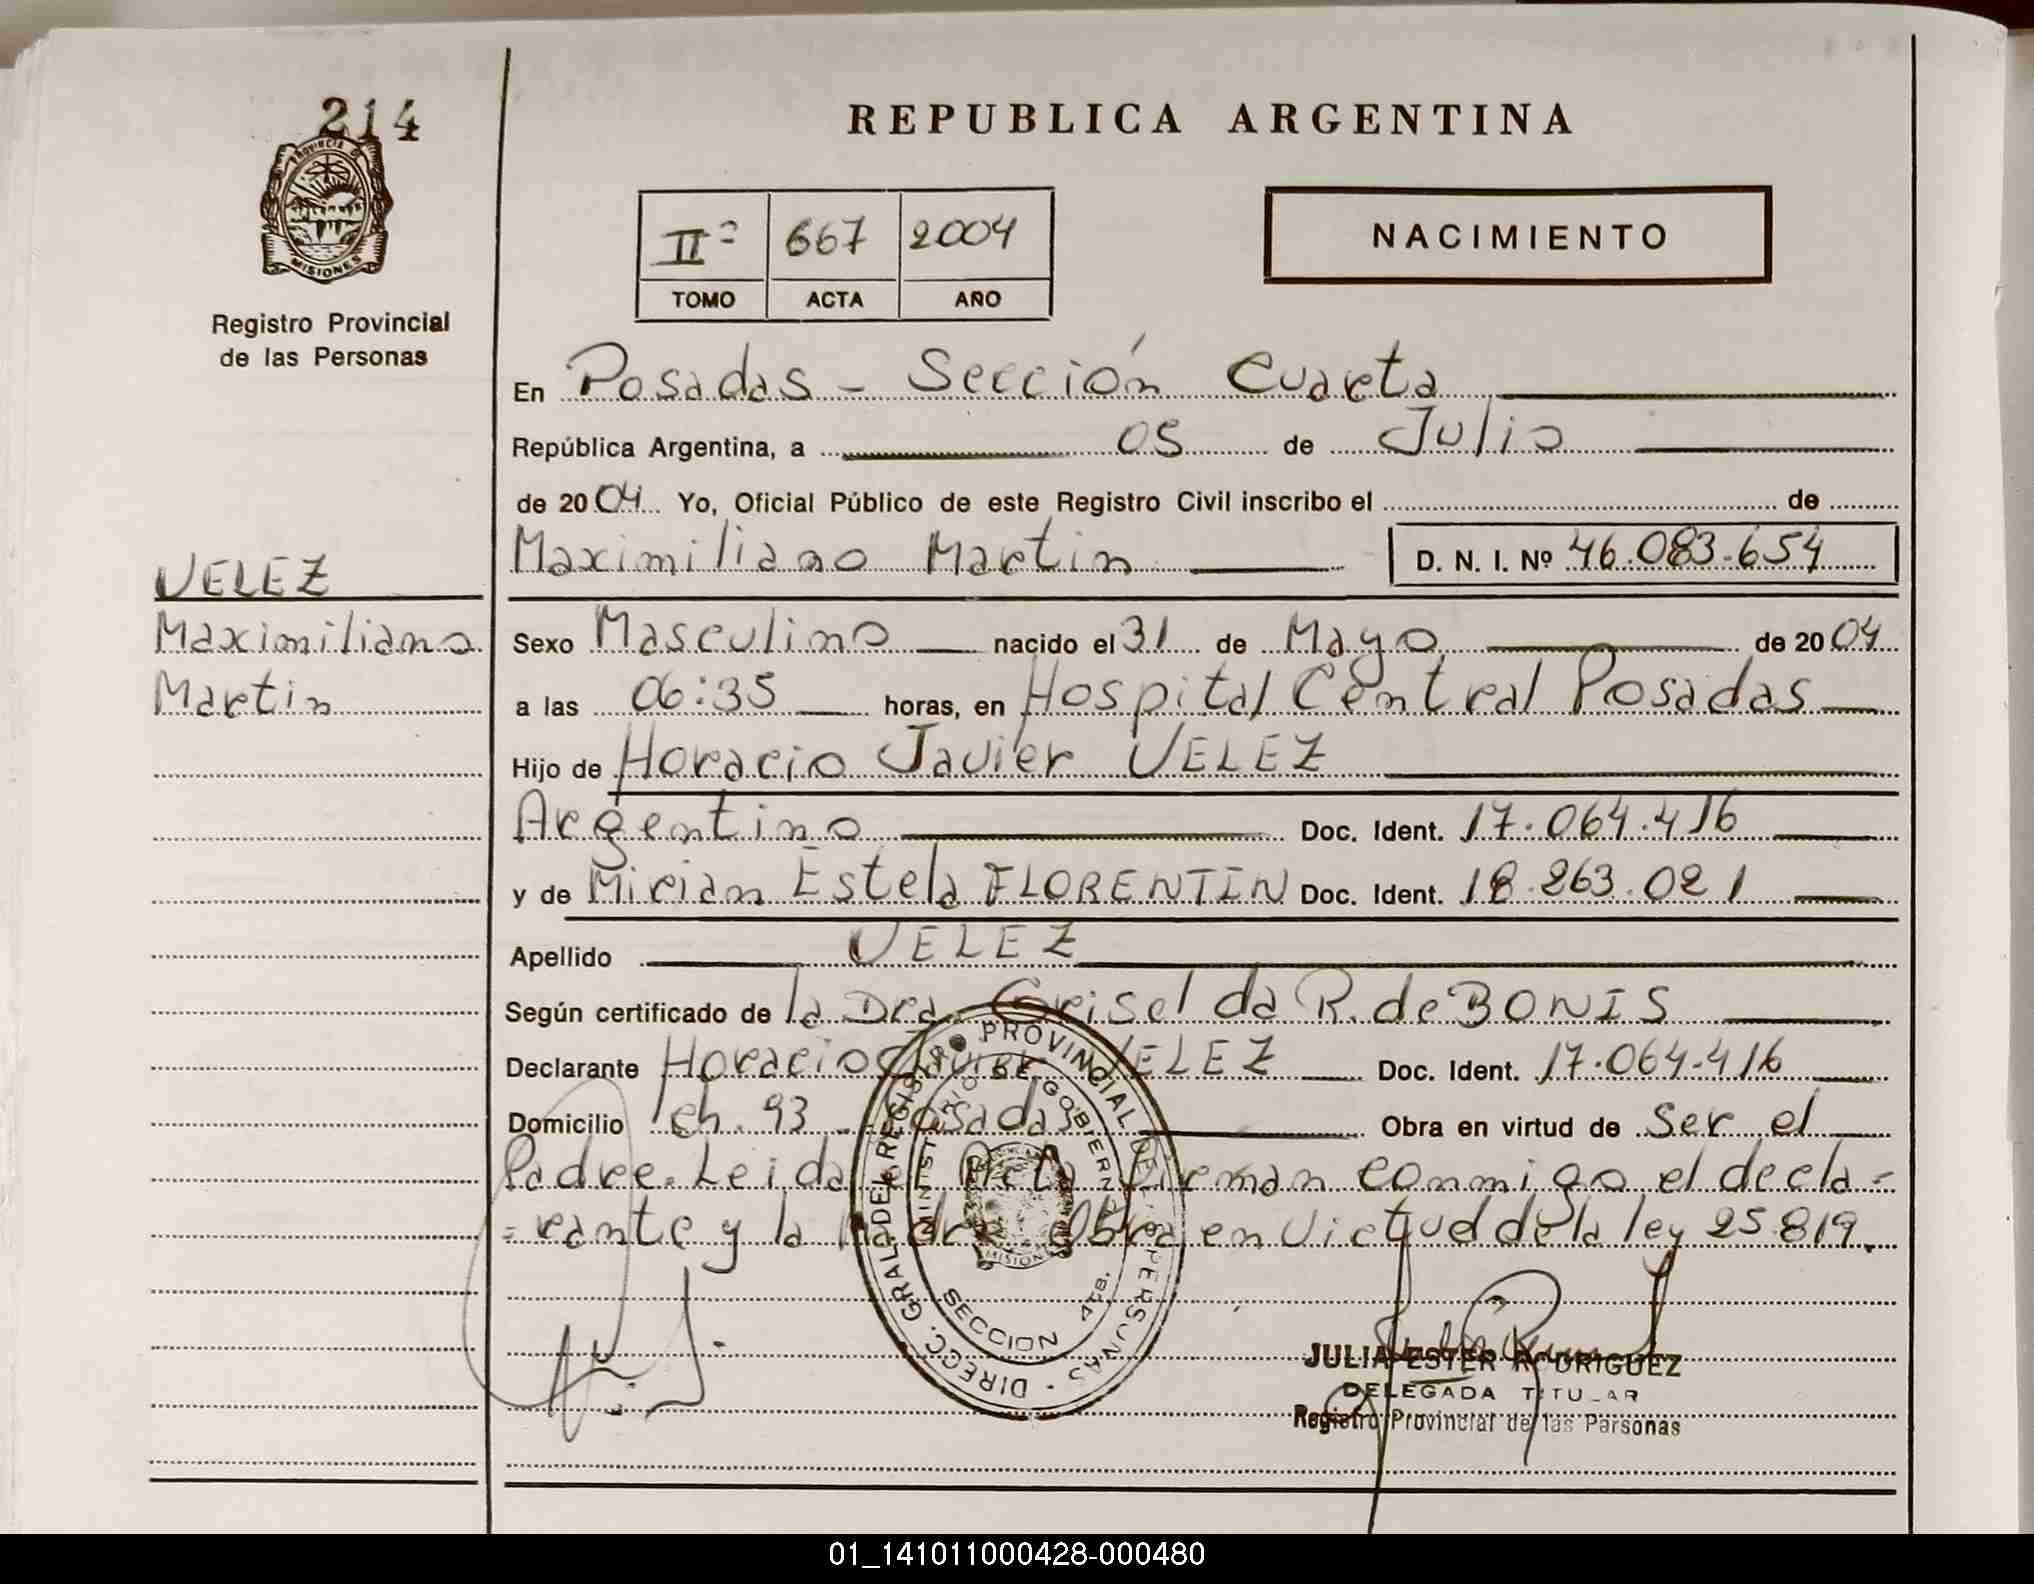 214
PROVINCIA DE
MISIONES
Registro Provincial
de las Personas
VELEZ
Maximiliano
Martin
REPUBLICA ARGENTINA
IIº 667 2004
TOMO ACTA AÑO
NACIMIENTO
En Posadas - Sección Cuarta
República Argentina, a 05 de Julio
de 2004 Yo, Oficial Público de este Registro Civil inscribo el de
Maximiliano Martin D. N. I. Nº 46.083.654
Sexo Masculino nacido el 31 de Mayo de 2004
a las 06:35 horas, en Hospital Central Posadas
Hijo de Horacio Javier VELEZ
Argentino Doc. Ident. 17.064.416
y de Mirian Estela FLORENTIN Doc. Ident. 18.263.021
Apellido VELEZ
Según certificado de la Dra. Griselda R. de BONIS
Declarante Horacio Javier VELEZ Doc. Ident. 17.064.416
Domicilio ch. 93 - Posadas Obra en virtud de Ser el
Padre. Leida el Acta Firman conmigo el decla=
=rante y la Madre Obra en Virtud de la ley 25.819.
DIRECC. GRAL. DEL REGISTRO PROVINCIAL DE LAS PERSONAS
MINISTERIO DE GOBIERNO
MISIONES
SECCION 4TA.
JULIA ESTER RODRIGUEZ
DELEGADA TITULAR
Registro Provincial de las Personas
01_141011000428-000480